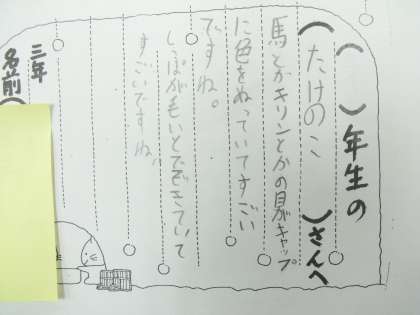 ( )年生の
(たけのこ )さんへ
馬とかキリンとかの目がキャップ
に色をぬっていてすごい
ですね。
しっぽが毛いとでできていて
すごいですね、
三年
名前(